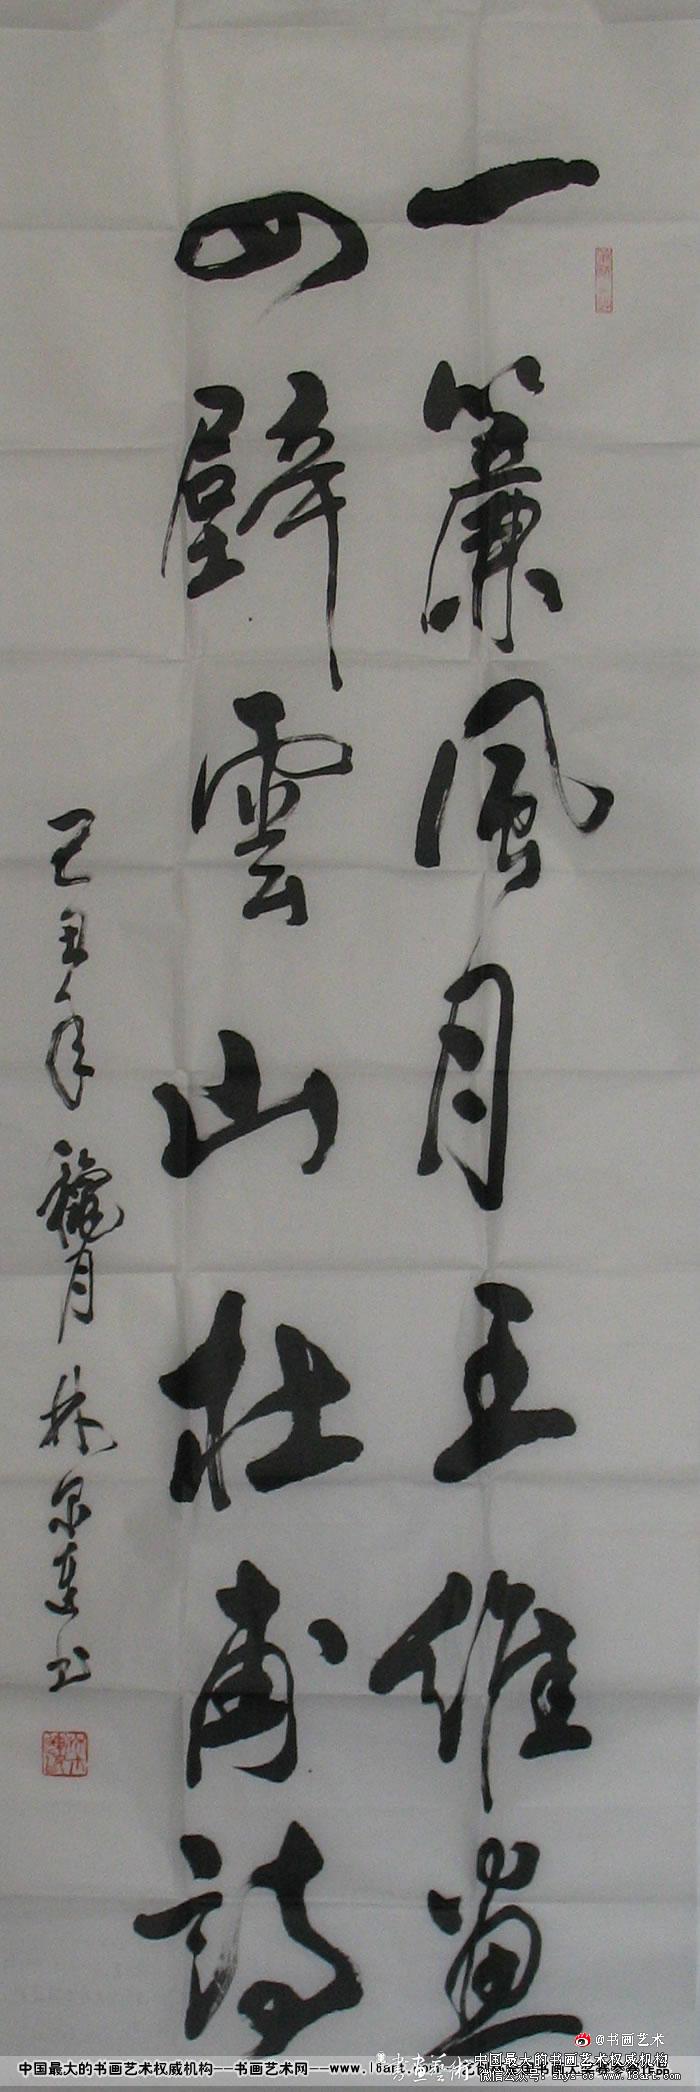 一簾風月王維畫
四壁雲山杜甫詩
己丑年龝月林泉連书
@书画艺术
中国最大的书画艺术权威机构--书画艺术网--www.18art.com
中国最大的书画艺术权威机构